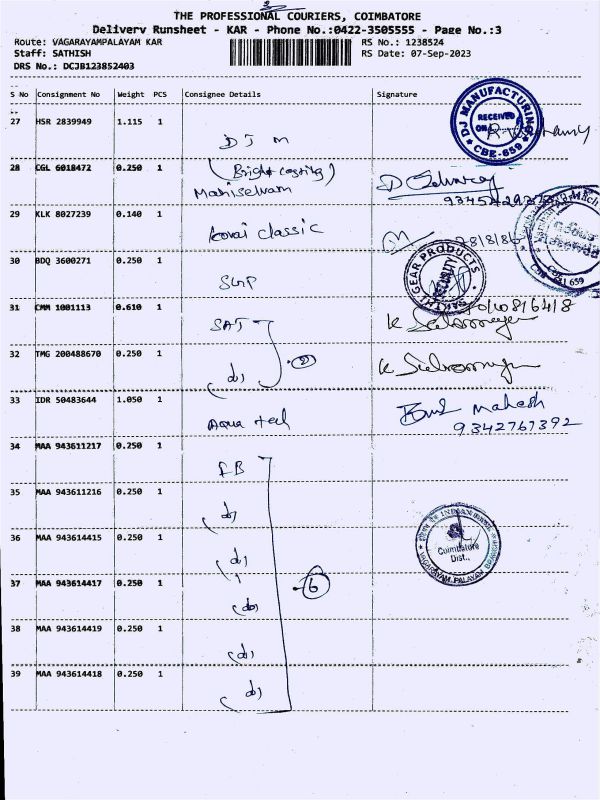 THE PROFESSIONAL COURIERS, COIMBATORE
Delivery Runsheet - KAR - Phone No.:0422-3505555 - Page No.:3
Route: VAGARAYAMPALAYAM KAR RS No.: 1238524
Staff: SATHISH RS Date: 07-Sep-2023
DRS No.: DCJB123852403
S No Consignment No Weight PCS Consignee Details Signature
27 HSR 2839949 1.115 1 DJM
DJ MANUFACTURING RECEIVED ON CBE-659
28 CGL 6018472 0.250 1 (Bright casting)
Maniselvam
29 KLK 8027239 0.140 1 Kovai classic
30 BDQ 3600271 0.250 1 SGP
SAKTHI GEAR PRODUCTS SECURITY
31 CMM 1001113 0.610 1 SAT
32 TMG 200488670 0.250 1 (do) 2
33 IDR 50483644 1.050 1 Aqua tech Mahesh
9342767392
34 MAA 943611217 0.250 1 FB
35 MAA 943611216 0.250 1 (do)
36 MAA 943614415 0.250 1 (do)
Coimbatore Dist.,
VAGARAYAM PALAYAM
37 MAA 943614417 0.250 1 (do) 6
38 MAA 943614419 0.250 1 (do)
39 MAA 943614418 0.250 1 (do)